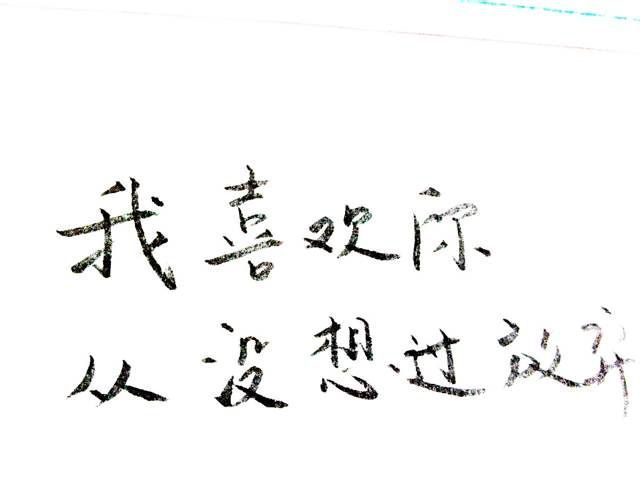 我喜欢你
从没想过放弃